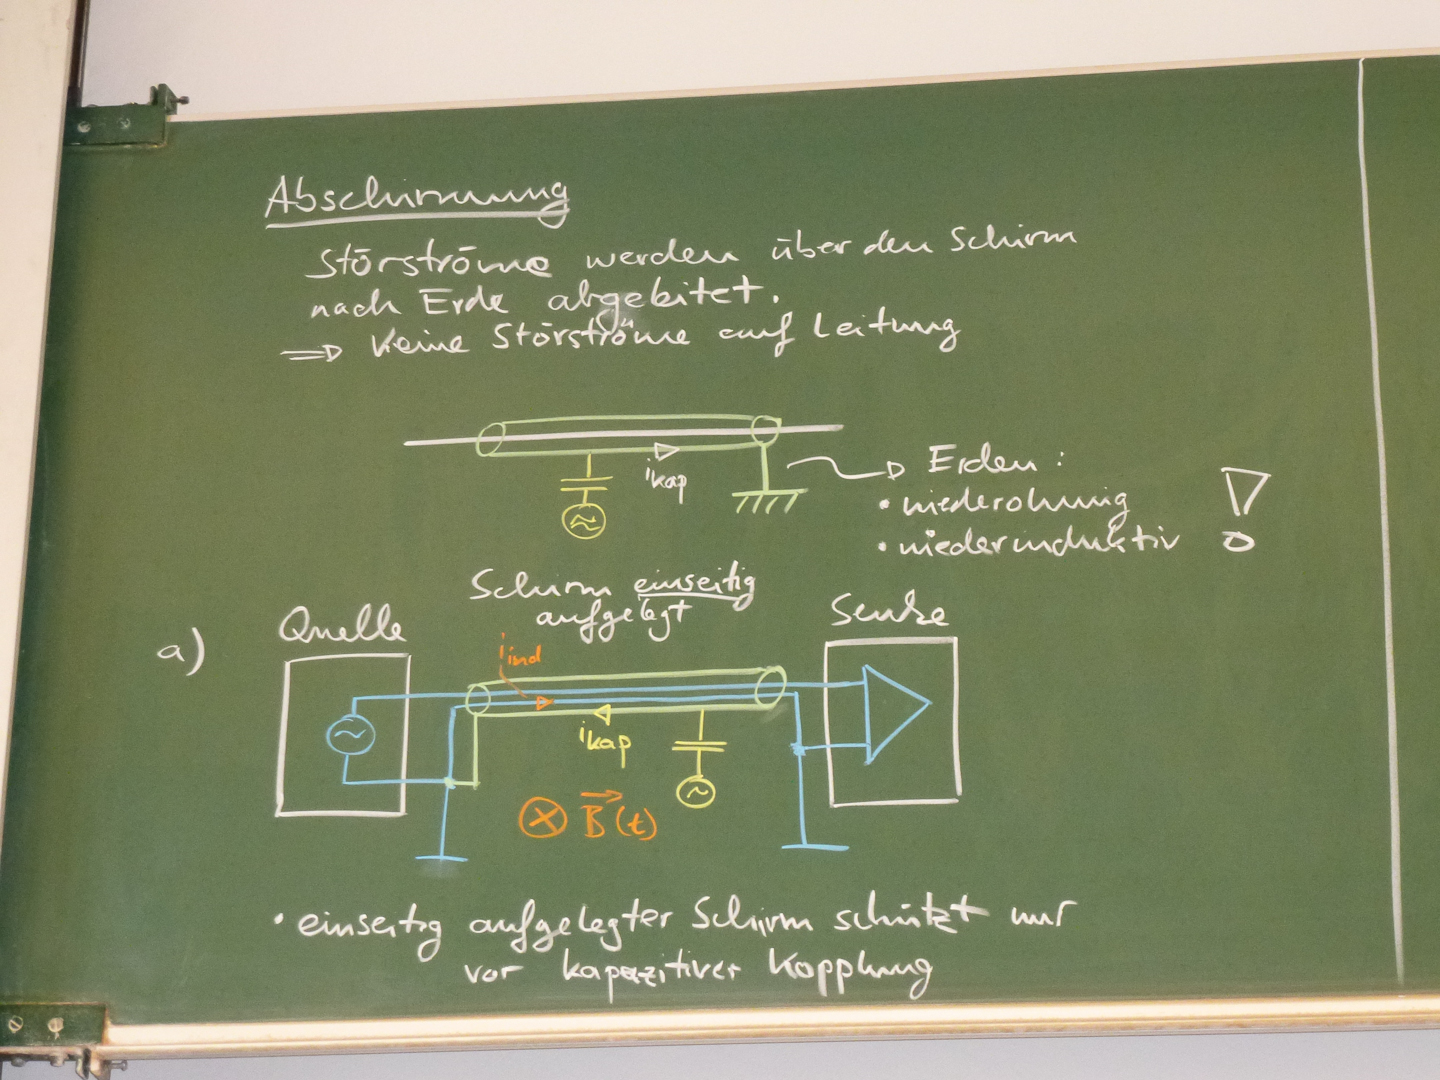 Abschirmung
Störströme werden über den Schirm
nach Erde abgeleitet.
⇒ Keine Störströme auf Leitung
ikap
Erden:
• niederohmig
• niederinduktiv
!
Schirm einseitig
aufgelegt
a)
Quelle
Senke
iind
ikap
B(t)
• einseitig aufgelegter Schirm schützt nur
vor kapazitiver Kopplung